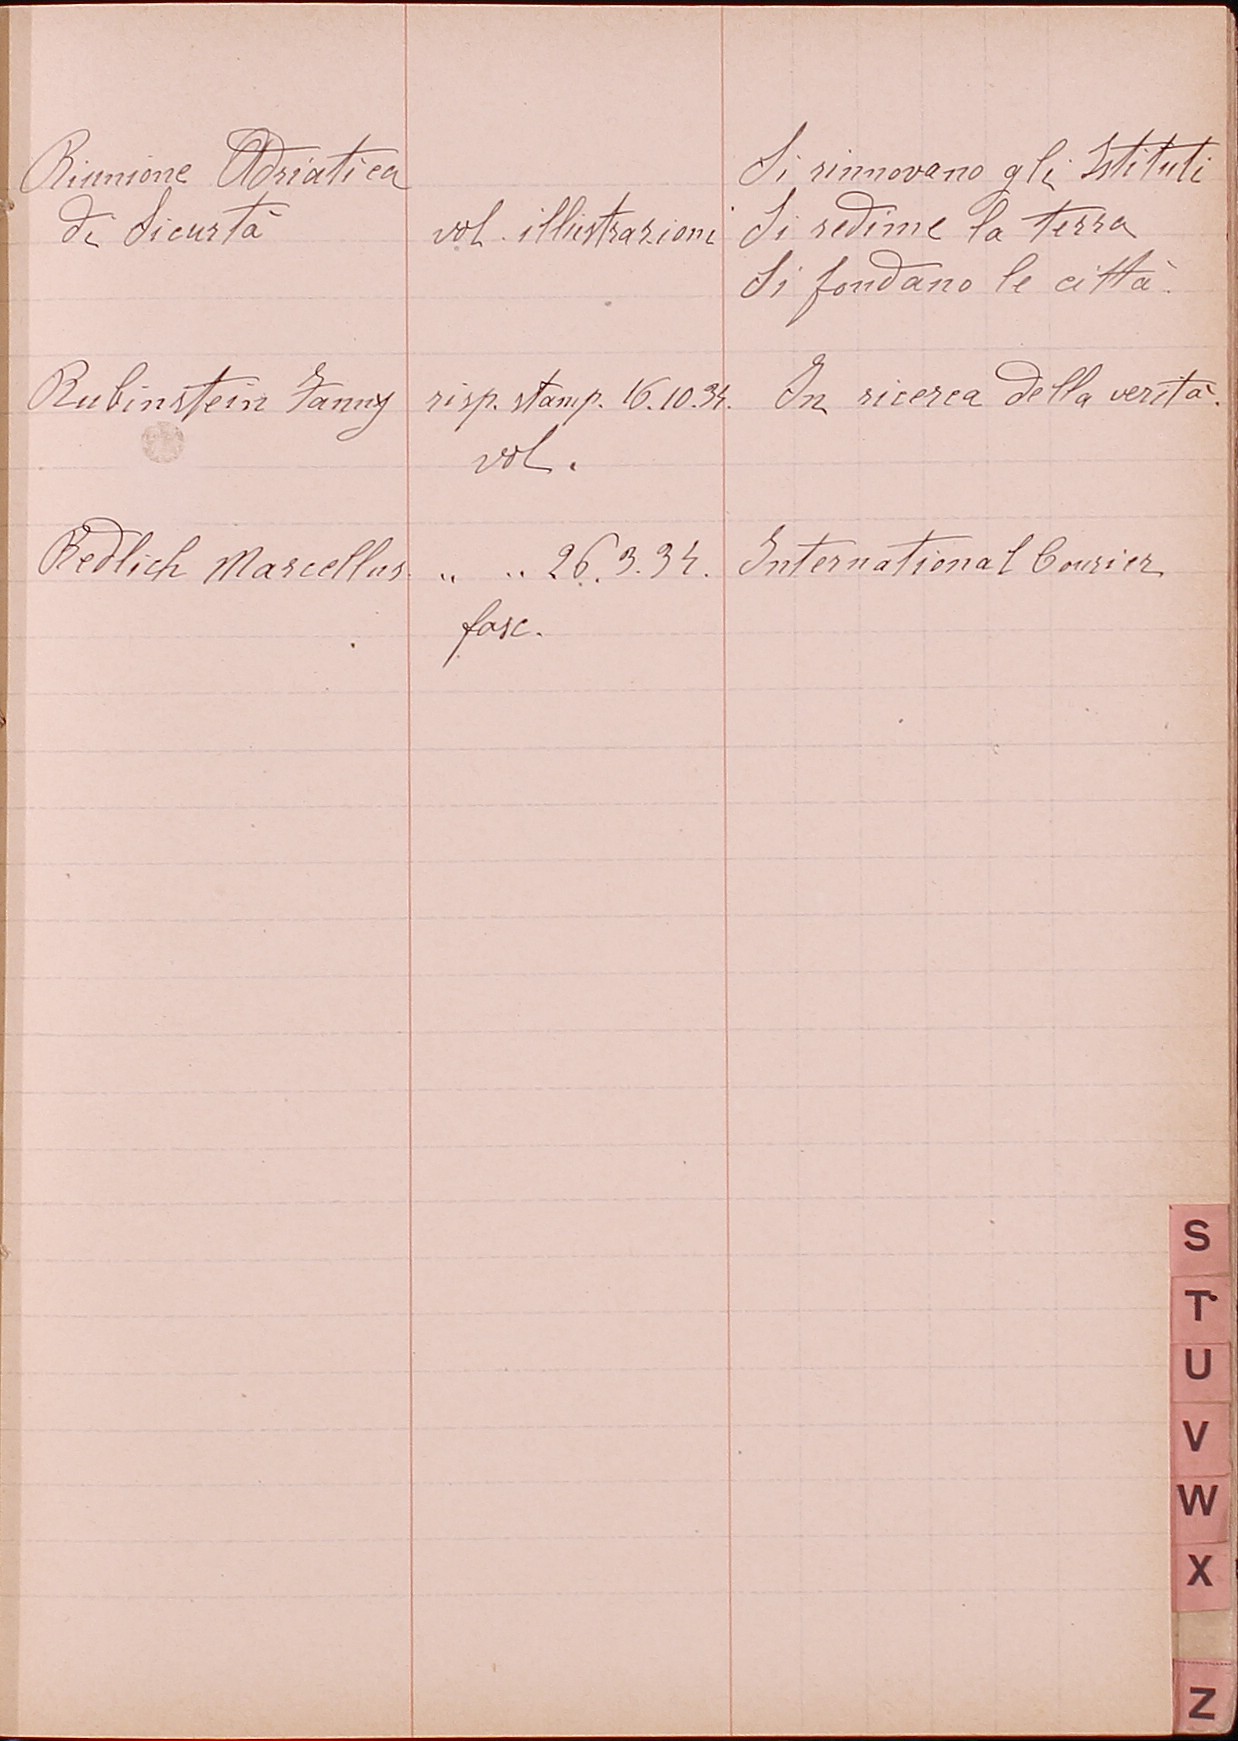 Riunione Adriatica
di Sicurtà
vol. illustrazioni
Si rinnovano gli Istituti
Si redime la terra
Si fondano le città.
Rubinstein Fanny risp. stamp. 16.10.34. In ricerca della verità.
vol.
Redlich Marcellus. " " 26.3.34. International Courier
fasc.
S
T
U
V
W
X
Z